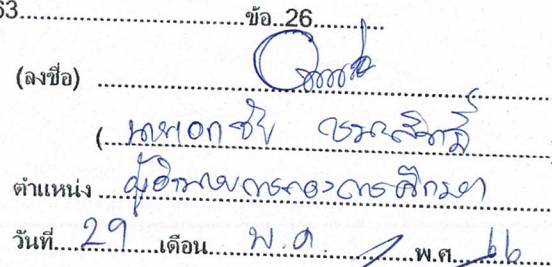 63 ข้อ..26
(ลงชื่อ)
(นายเอกชัย
ตำแหน่ง ผู้อำนวยการกองการศึกษา
วันที่ 29 เดือน พ.ค. พ.ศ. 66